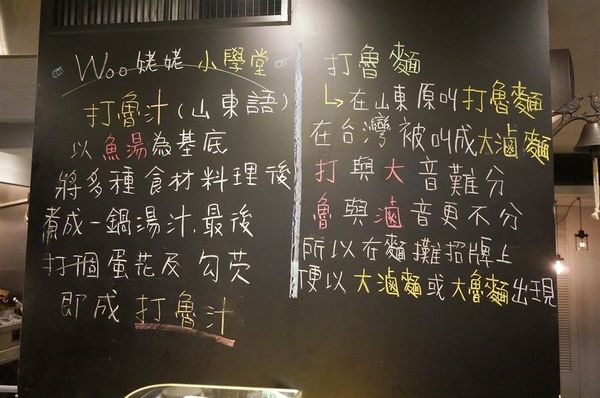 Woo姥姥 小學堂
打魯汁(山東語)
以魚湯為基底
將多種食材料理後
煮成一鍋湯汁.最後
打個蛋花及勾芡
即成 打魯汁
打魯麵
↳在山東原叫打魯麵
在台灣被叫成大滷麵
打與大音難分
魯與滷音更不分
所以在麵攤招牌上
便以大滷麵或大魯麵出現